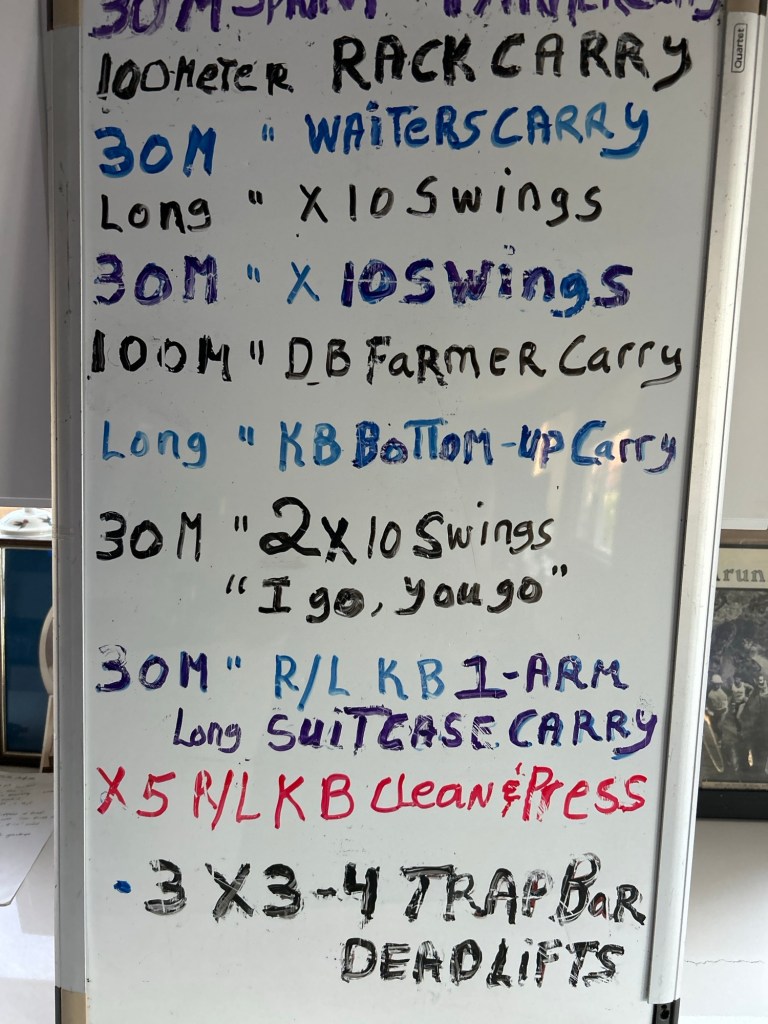 30M
100METER RACK CARRY
Quartet
30M " WAiTERS CARRY
Long " X 10 Swings
30M " X 10 SWings
100M " DB FaRMER Carry
Long " KB BoTTOM-UP Carry
30M " 2X10 Swings
"I go, you go"
30M " R/L KB 1-ARM
Long SUiTCASE CARRY
X5 R/L KB Clean & Press
• 3 X 3-4 TRAP BaR
DEADLiFTS
run